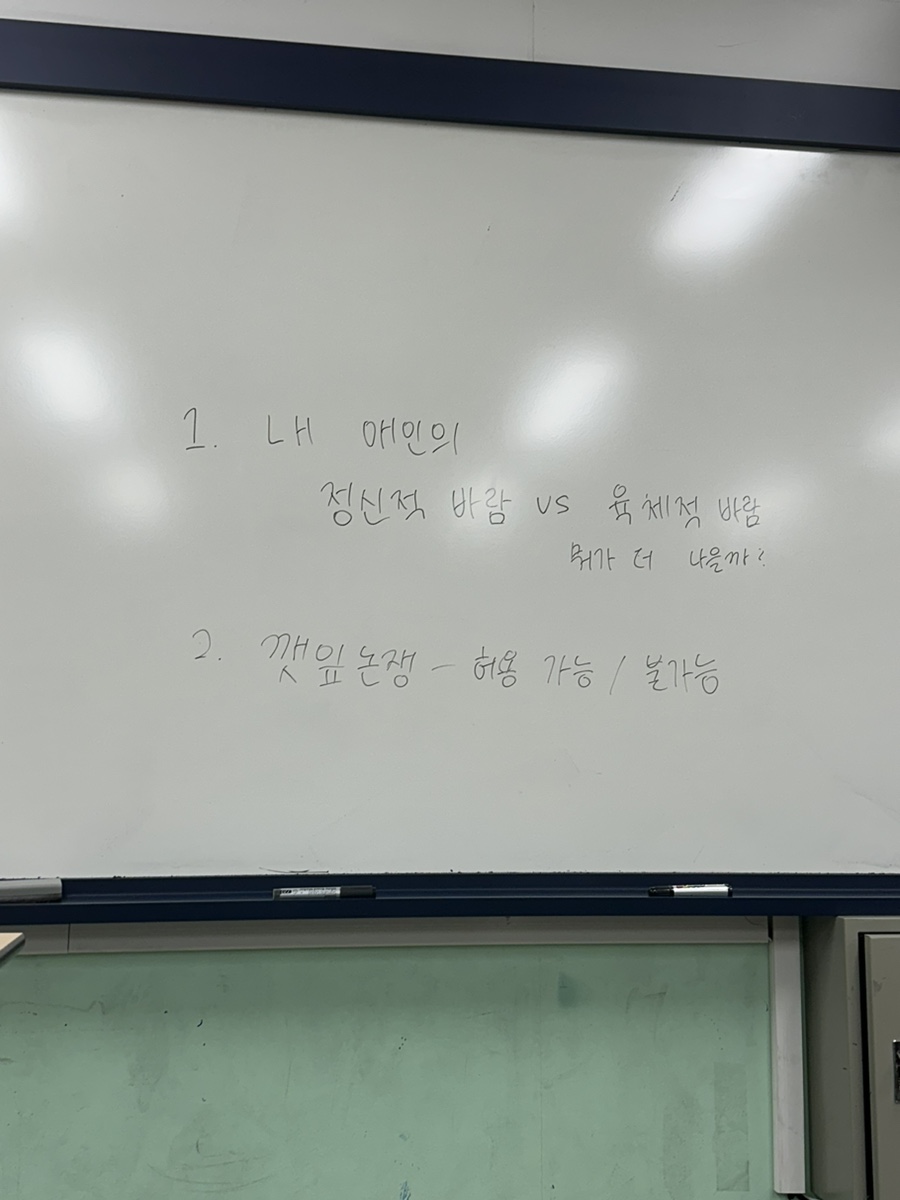 1. 내 애인의
정신적 바람 vs 육체적 바람
뭐가 더 나을까?
2. 깻잎논쟁 - 허용 가능 / 불가능